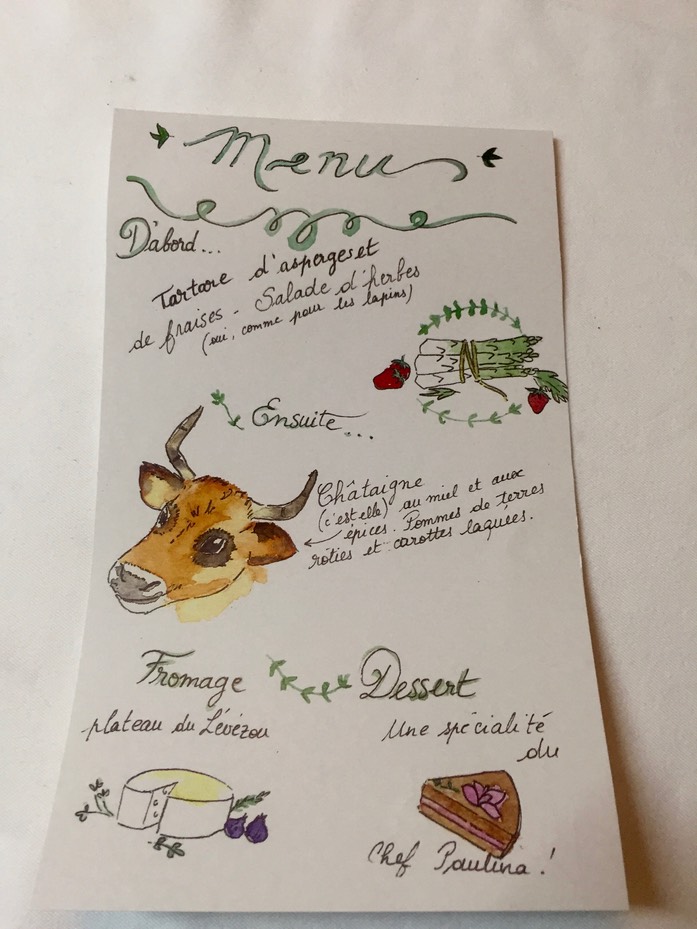 Menu
D'abord...
Tartare d'asperges et
de fraises - Salade d'herbes
(oui, comme pour les lapins)
Ensuite...
Châtaigne
(c'est elle) au miel et aux
épices. Pommes de terres
roties et carottes laquées.
Fromage
plateau du Lévézou
Dessert
Une spécialité
du
Chef Paulina !